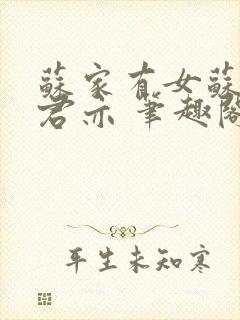 蘇家有女蘇
君亦 筆趣閣
平生未知寒